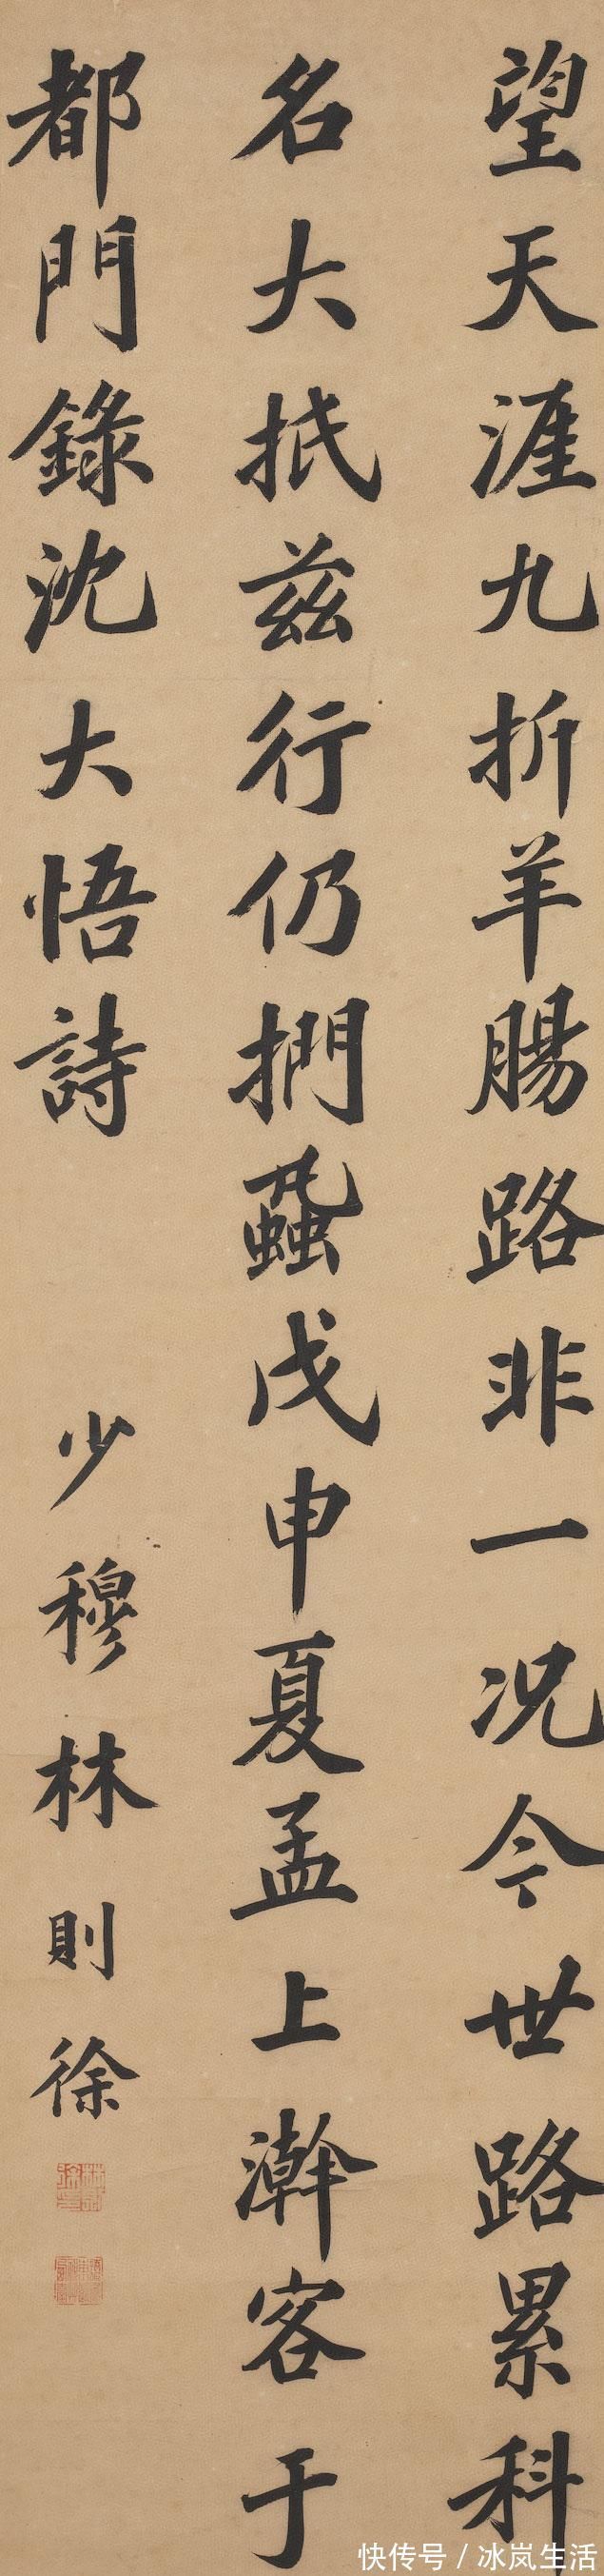 望天涯九折羊腸路非一况今世路累科
名大抵兹行仍捫蝨戊申夏孟上澣客于
都門錄沈大悟詩
少穆林則徐
快传号/冰岚生活